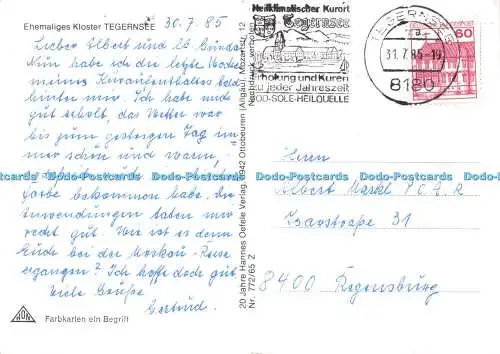 Ehemaliges Kloster TEGERNSEE
30.7.85
Lieber Albert und Lb. Gunda!
Nun habe ich die letzte Woche
meines Kuraufenthaltes
Ich habe mich
gut erholt, das Wetter war
bis zum gestrigen Tag im-
mer schön und warm,
Farbe bekommen habe. Die
Anwendungen taten mir
recht gut. Wie ist es denn
Euch bei der Moskau-Reise
ergangen? Ich hoffe doch gut
Viele Grüße
Gertrud.
HON
Farbkarten ein Begriff
20 Jahre Hannes Oefele Verlag, 8942 Ottobeuren (Allgäu), Mozartstr. 12
Nr. 772/65 Z
Nachdruck verboten
Heilklimatischer Kurort
Tegernsee
Erholung und Kuren
zu jeder Jahreszeit
JOD-SOLE-HEILQUELLE
TEGERNSEE
31.7.85-19
8180
60
Herrn
Albert Markl P.O.A.R
Isarstraße 31
8400 Regensburg
Dodo-Postcards Dodo-Postcards Dodo-Postcards Dodo-Postcards